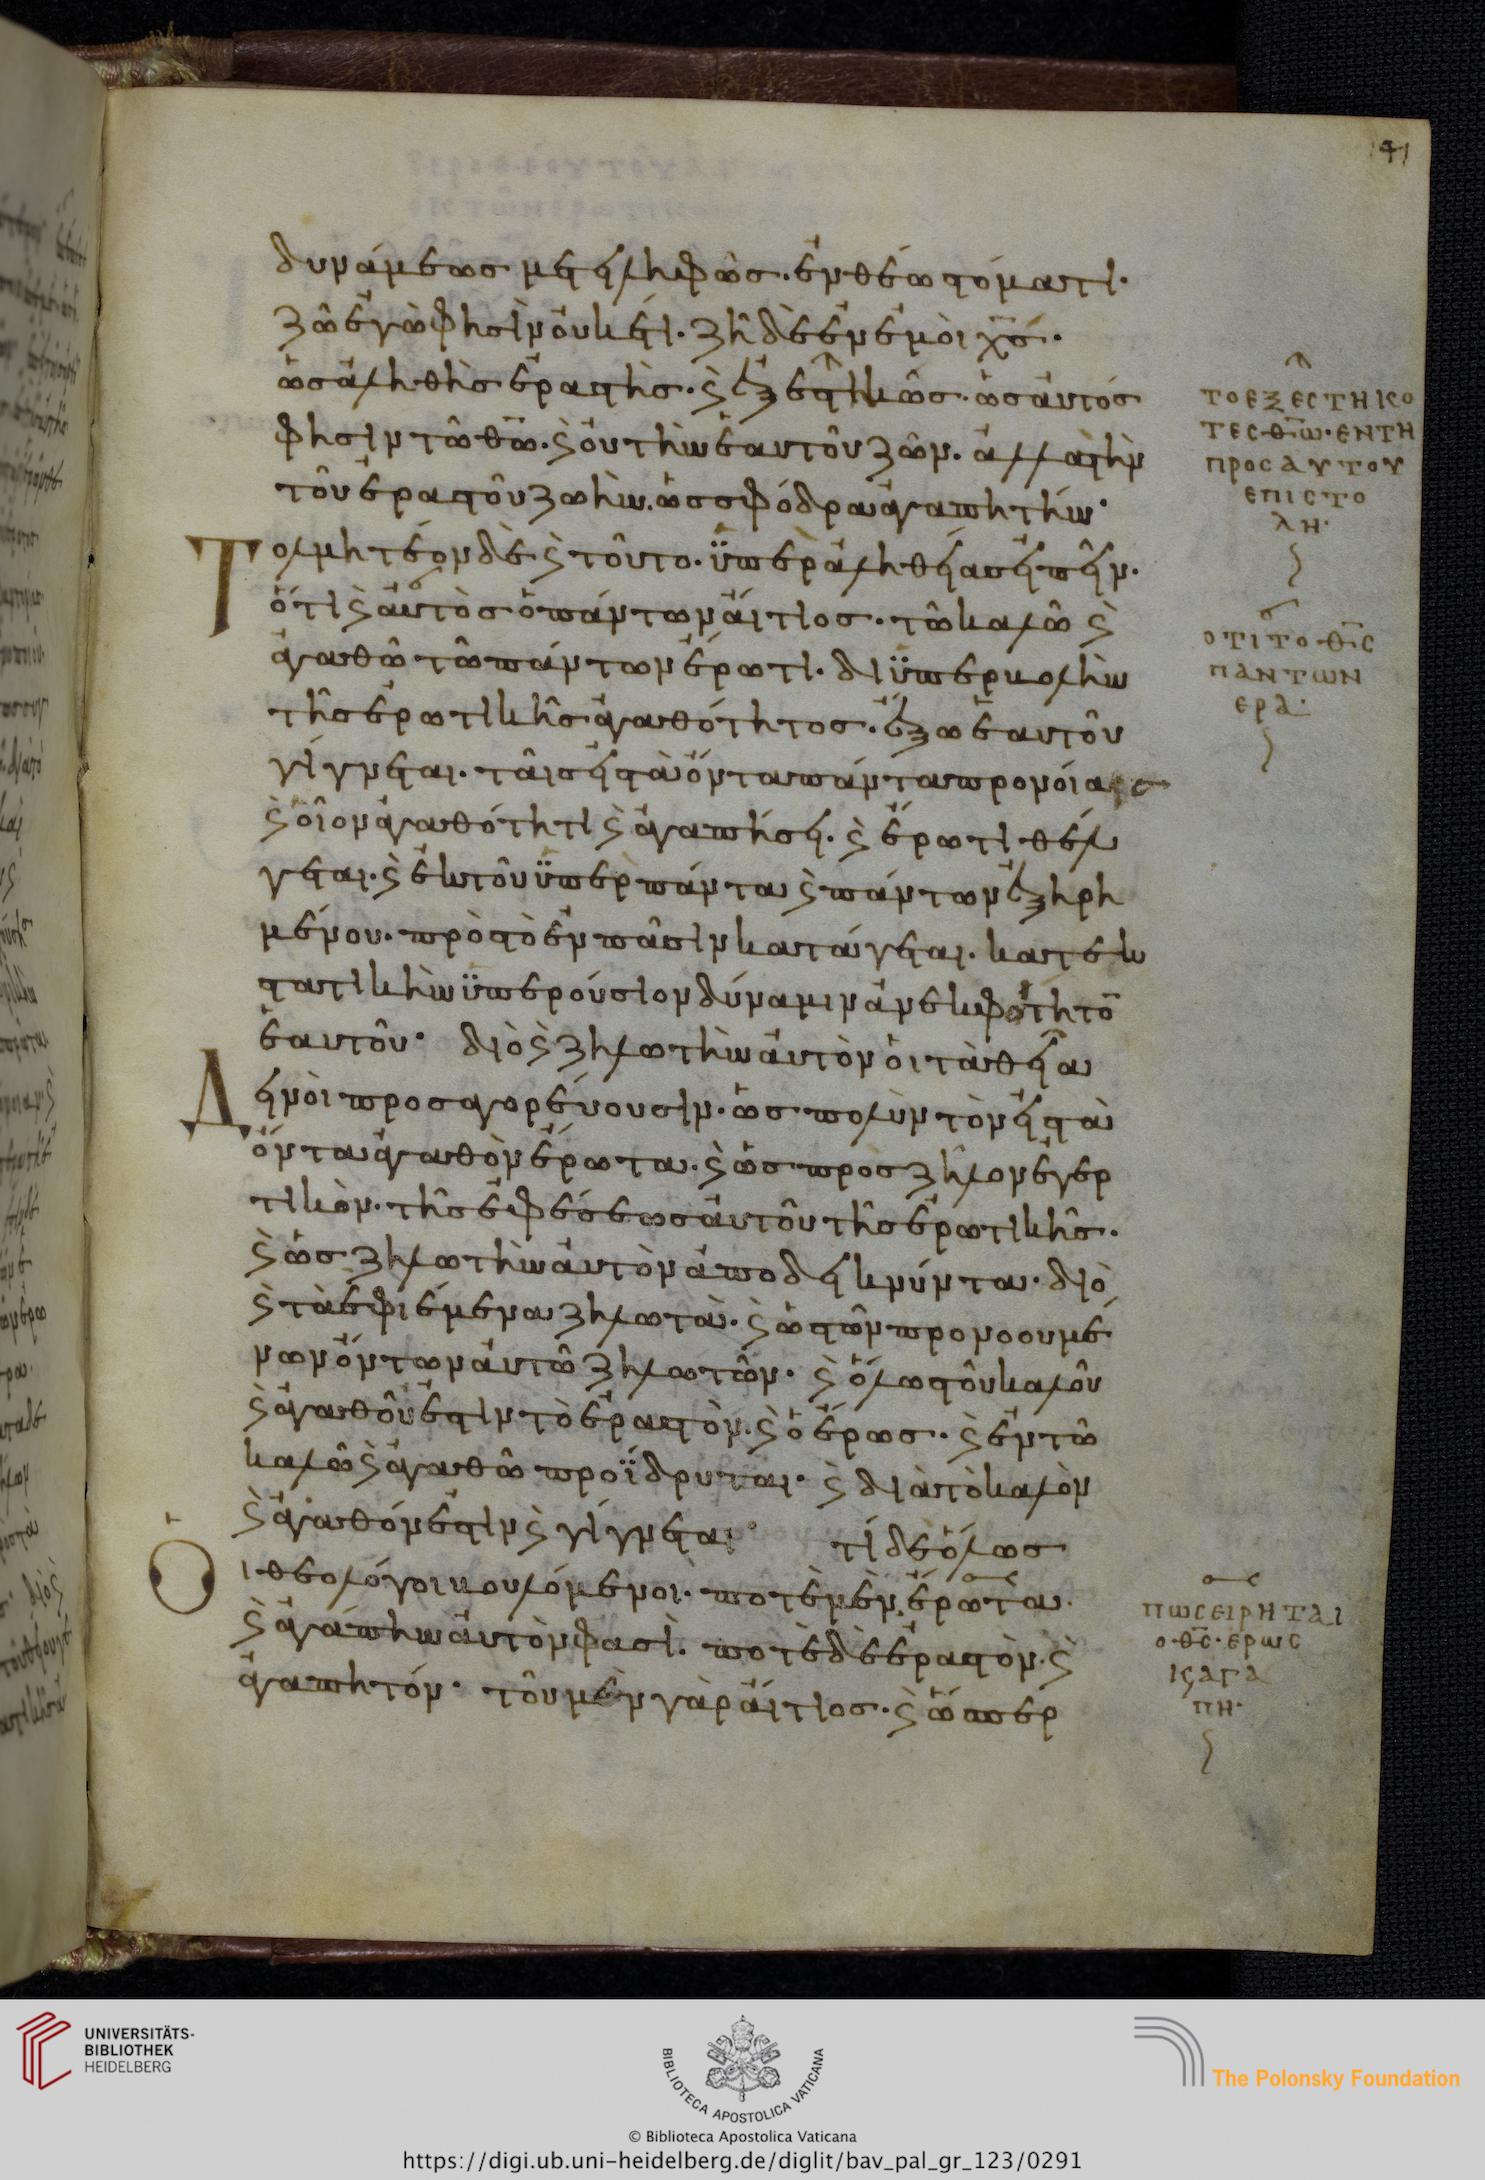 41
δυνάμεως μετειληφὼς· ἐν θέω στόματι·
ζῶ ἐγὼ φησὶν οὐκέτι· ζῆ δὲ ἐν ἐμοὶ χσ·
ὡς ἀληθὴς ἐραστὴς· ϗ ἐξεστηκὼς· ὡς αὐτός
φησιν τῶ θω· ϗ οὐ τὴν ἑαυτοῦ ζῶν· ἀλλα τὴν
τοῦ ἐραστοῦ ζωὴν. ὡς σφόδρα ἀγαπητήν·
Τολμητέον δὲ ϗ τοῦτο· ϋπὲρ ἀληθείας εἰπεῖν·
ὅτι ϗ αὐτὸς ὁ πάντων ἄιτιος· τῶ καλῶ ϗ
ἀγαθῶ τῶ πάντων ἔρωτι· δι ϋπερβολὴν
τῆς ἐρωτικῆς ἀγαθότητος· ἔξω ἑαυτοῦ
γίγνεται· ταῖς εἰς τὰ ὄντα πάντα προνοίαις
ϗ οἷον ἀγαθότητι ϗ ἀγαπήσει· ϗ ἔρωτι θέλ
γεται· ϗ ἐκ τοῦ ϋπὲρ πάντα ϗ πάντων ἐξηρη
μένου· πρὸς τὸ ἐν πᾶσιν κατάγεται· κατ ἐκ
στατικὴν ϋπερούσιον δύναμιν ἀνεκφοίτητο
ἑαυτοῦ· διὸ ϗ ζηλωτὴν αὐτὸν οἱ τὰ θεῖα
Δεινοὶ προσαγορεύουσιν· ὡς πολὺν τὸν εἰς τὰ
ὄντα ἀγαθὸν ἔρωτα· ϗ ὡς πρὸς ζῆλον ἐγερ
τικὸν· τῆς ἐφέσεως αὐτοῦ τῆς ἐρωτικῆς·
ϗ ὡς ζηλωτὴν αὐτὸν ἀποδεικνύντα· διὸ
ϗ τὰ ἐφιέμενα ζηλωτὰ· ϗ ὡς τῶν προνοουμέ
νων ὄντων αὐτῶ ζηλωτῶν· ϗ ὅλως τοῦ καλοῦ
ϗ ἀγαθοῦ ἐστιν τὸ ἐραστὸν· ϗ ὁ ἔρως· ϗ ἐν τῶ
καλῶ ϗ ἀγαθῶ προϊδρυται· ϗ διὰ τὸ καλὸν
ϗ ἀγαθόν ἐστιν ϗ γίγνεται· τί δὲ ὅλως
Οἱ θεολόγοι βουλόμενοι· ποτὲ μὲν ἔρωτα·
ϗ ἀγάπην αὐτὸν φασὶ· ποτὲ δὲ ἐραστὸν· ϗ
ἀγαπητόν· τοῦ μὲν γὰρ ἄιτιος· ϗ ὥσπερ
ΤΟ ΕΞΕCΤΗΚΟ
ΤΕC ΘΩ· ΕΝ ΤΗ
ΠΡΟC ΑΥΤΟΥ
ΕΠΙCΤΟ
ΛΗ·
ΟΤΙ ΤΟ ΘC
ΠΑΝΤΩΝ
ΕΡΑ·
ΠΩC ΕΙΡΗΤΑΙ
Ο ΘC· ΕΡΩC
Κ ΑΓΑ
ΠΗ·
UNIVERSITÄTS-
BIBLIOTHEK
HEIDELBERG
BIBLIOTECA APOSTOLICA VATICANA
© Biblioteca Apostolica Vaticana
The Polonsky Foundation
https://digi.ub.uni-heidelberg.de/diglit/bav_pal_gr_123/0291